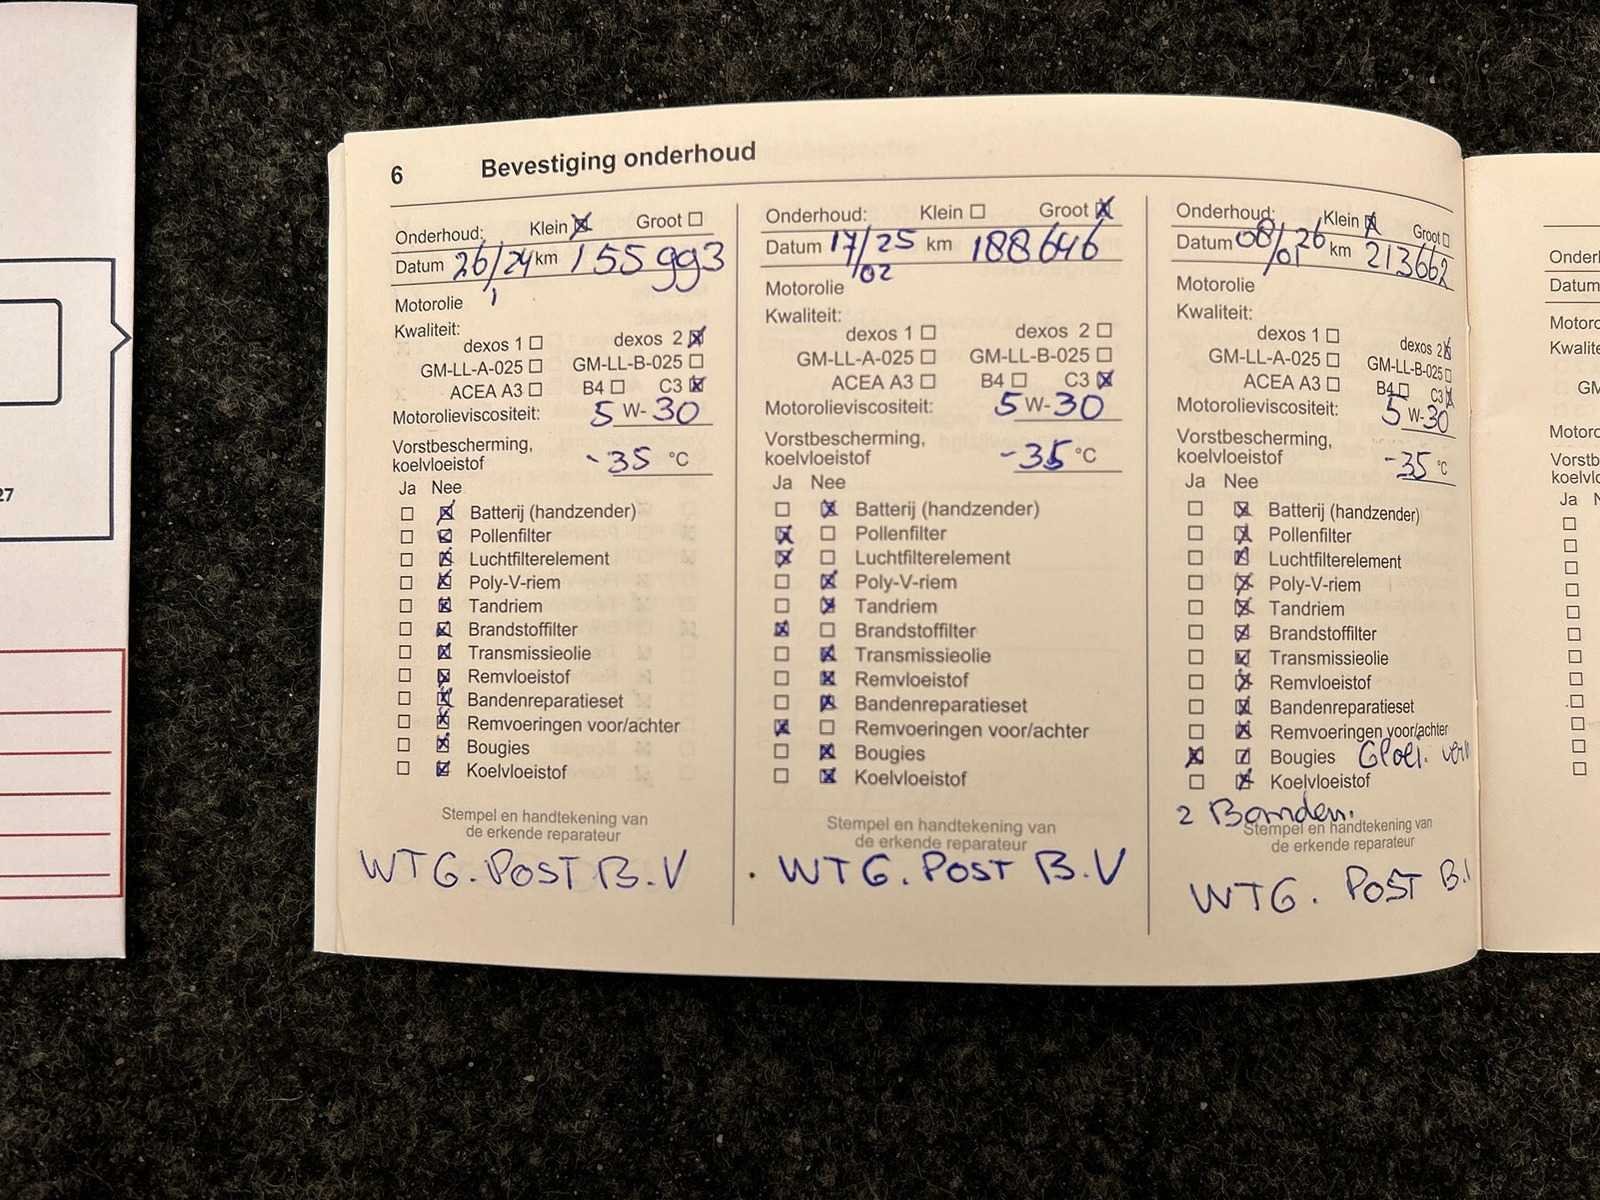 27
6 Bevestiging onderhoud
Onderhoud: Klein Groot
Datum 26/24 km 155993
1
Motorolie
Kwaliteit:
dexos 1 dexos 2
GM-LL-A-025 GM-LL-B-025
ACEA A3 B4 C3
Motorolieviscositeit: 5 W-30
Vorstbescherming,
koelvloeistof -35 °C
Ja Nee
Batterij (handzender)
Pollenfilter
Luchtfilterelement
Poly-V-riem
Tandriem
Brandstoffilter
Transmissieolie
Remvloeistof
Bandenreparatieset
Remvoeringen voor/achter
Bougies
Koelvloeistof
Stempel en handtekening van
de erkende reparateur
WTG. POST B.V
Onderhoud: Klein Groot
Datum 17/25 km 188646
02
Motorolie
Kwaliteit:
dexos 1 dexos 2
GM-LL-A-025 GM-LL-B-025
ACEA A3 B4 C3
Motorolieviscositeit: 5 W-30
Vorstbescherming,
koelvloeistof -35 °C
Ja Nee
Batterij (handzender)
Pollenfilter
Luchtfilterelement
Poly-V-riem
Tandriem
Brandstoffilter
Transmissieolie
Remvloeistof
Bandenreparatieset
Remvoeringen voor/achter
Bougies
Koelvloeistof
Stempel en handtekening van
de erkende reparateur
WTG. POST B.V
Onderhoud: Klein Groot
Datum 08/26 km 213662
01
Motorolie
Kwaliteit:
dexos 1 dexos 2
GM-LL-A-025 GM-LL-B-025
ACEA A3 B4 C3
Motorolieviscositeit: 5 W-30
Vorstbescherming,
koelvloeistof -35 °C
Ja Nee
Batterij (handzender)
Pollenfilter
Luchtfilterelement
Poly-V-riem
Tandriem
Brandstoffilter
Transmissieolie
Remvloeistof
Bandenreparatieset
Remvoeringen voor/achter
Bougies Gloei. ver
Koelvloeistof
2 Banden.
Stempel en handtekening van
de erkende reparateur
WTG. POST B.
Onderh
Datum
Motoro
Kwalite
GM
Motoro
Vorstb
koelvlo
Ja N